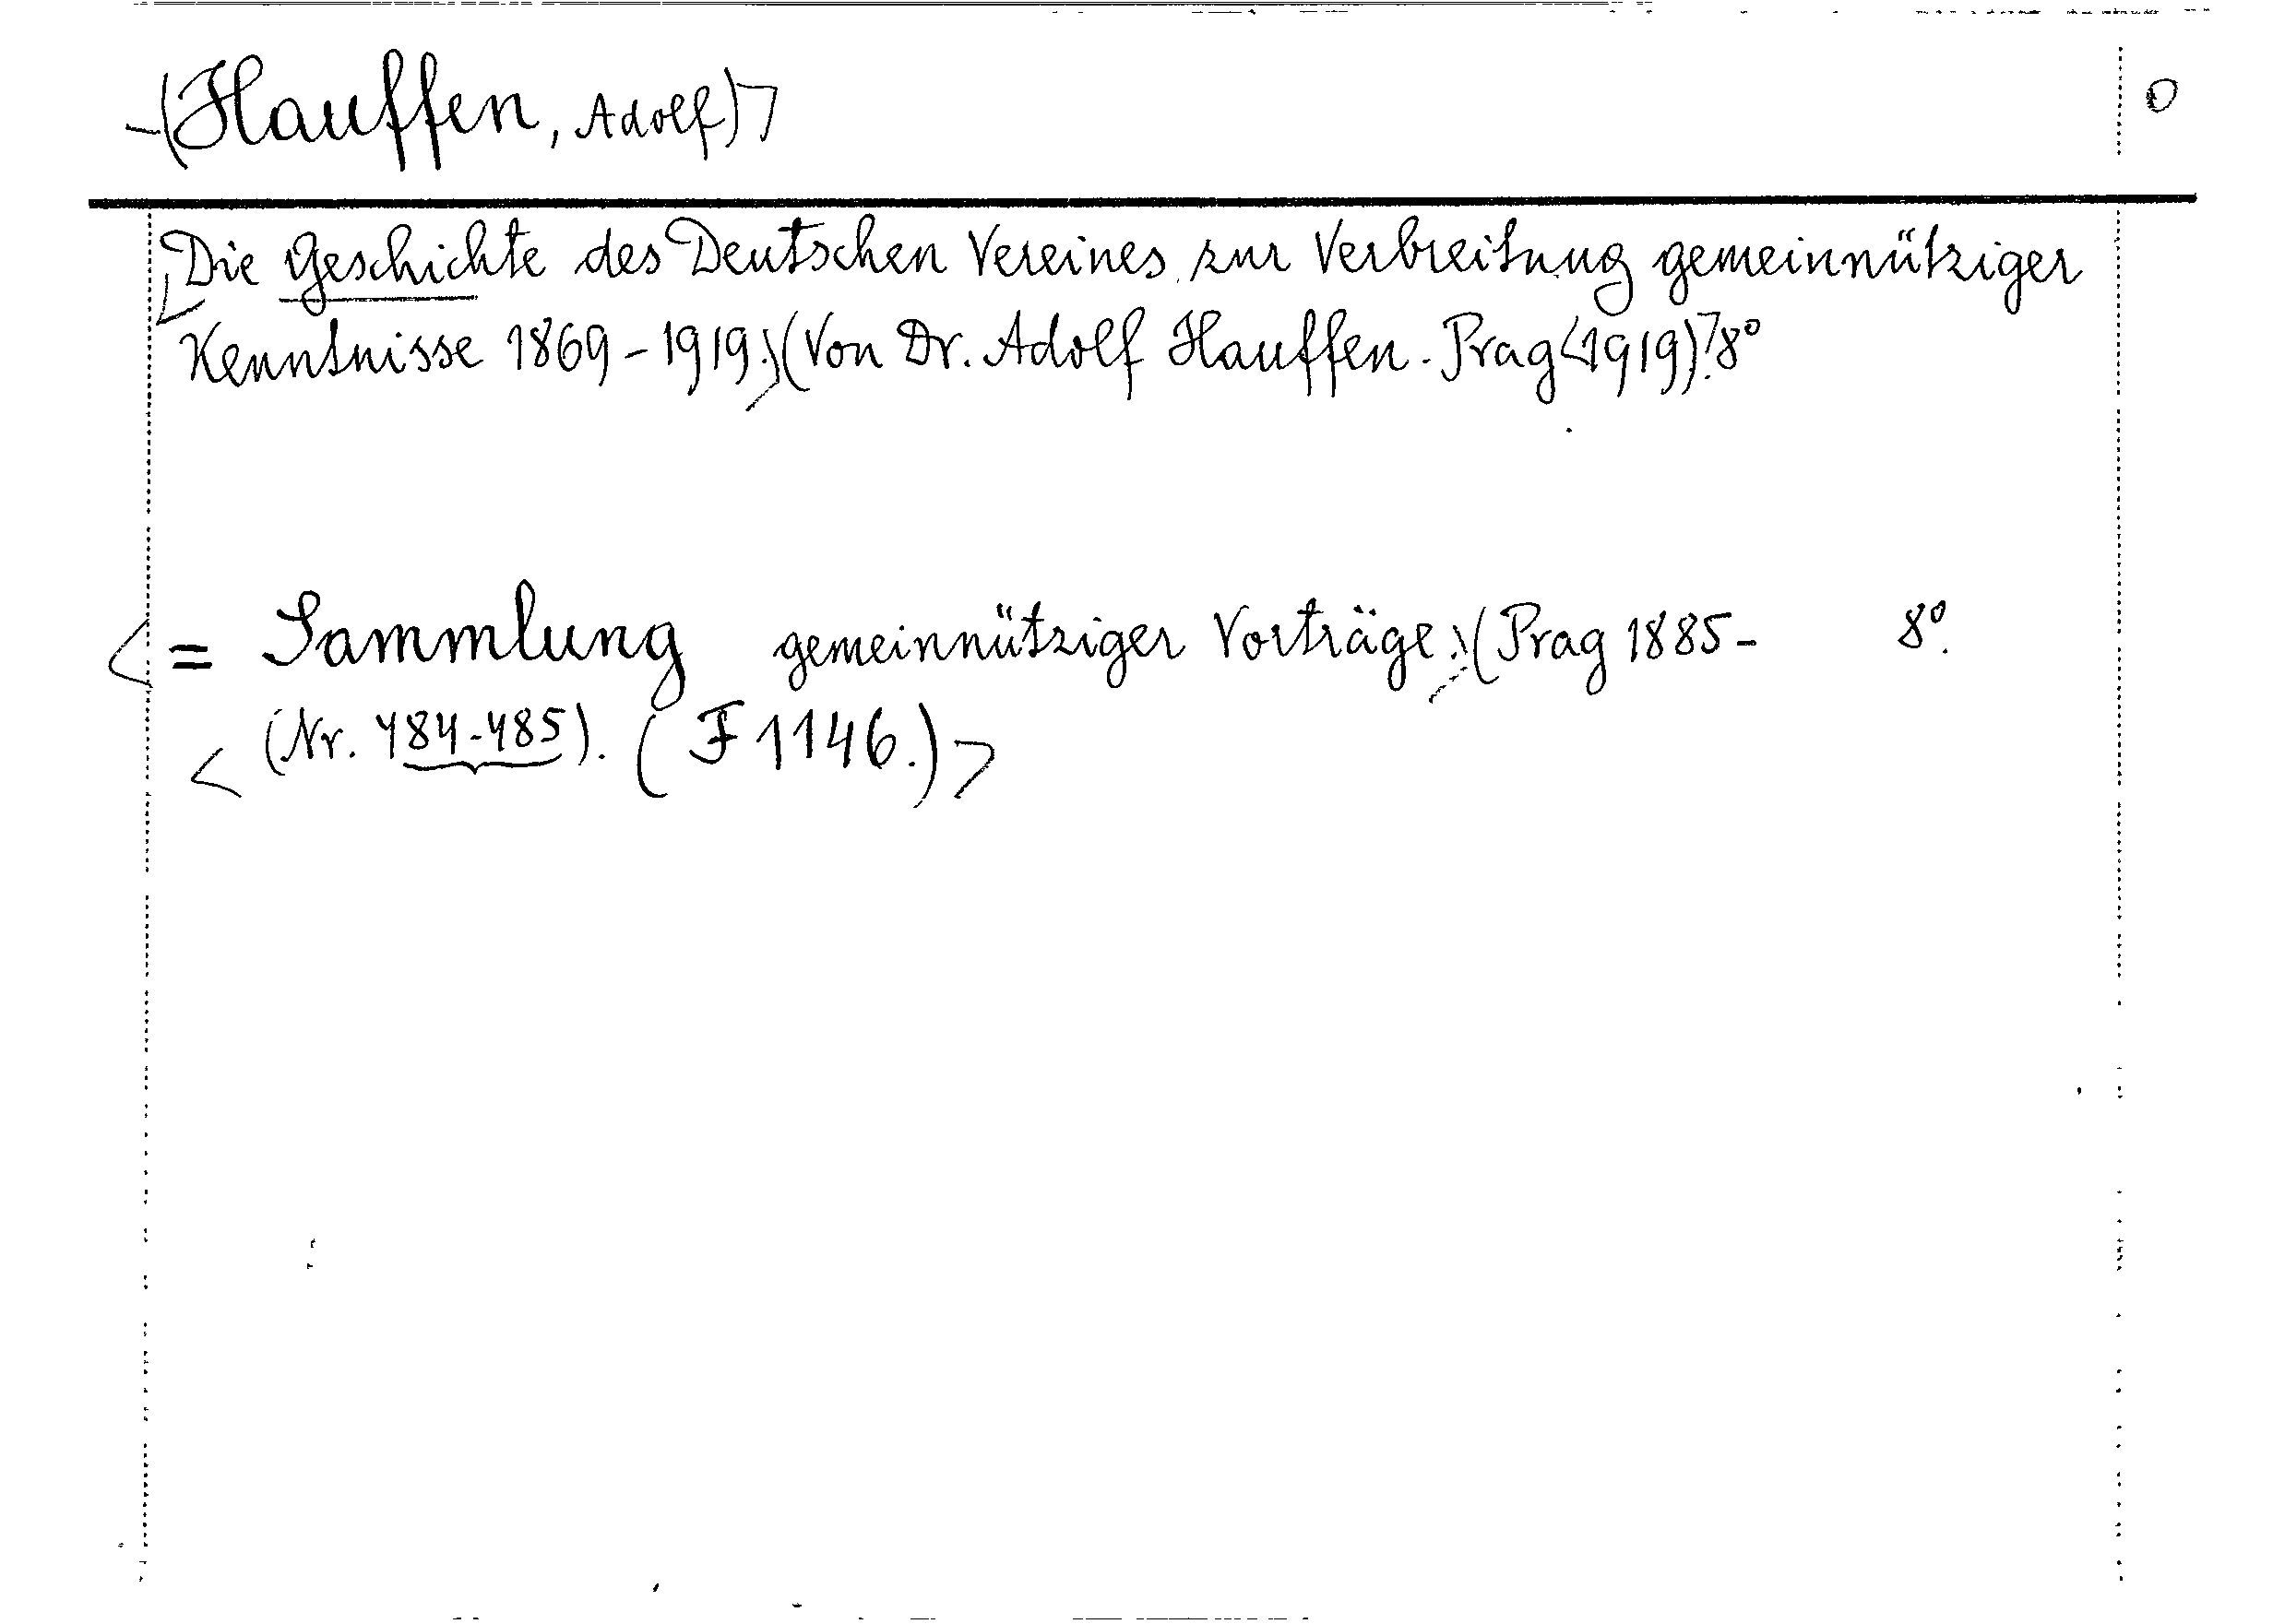 (Hauffen, Adolf) 0
Die Geschichte des Deutschen Vereines zur Verbreitung gemeinnütziger
Kenntnisse 1869-1919.) (Von Dr. Adolf Hauffen. Prag <1919).> 8°
<= Sammlung gemeinnütziger Vorträge.) (Prag 1885- 8°.
<(Nr. 484-485). (F 1146.)>